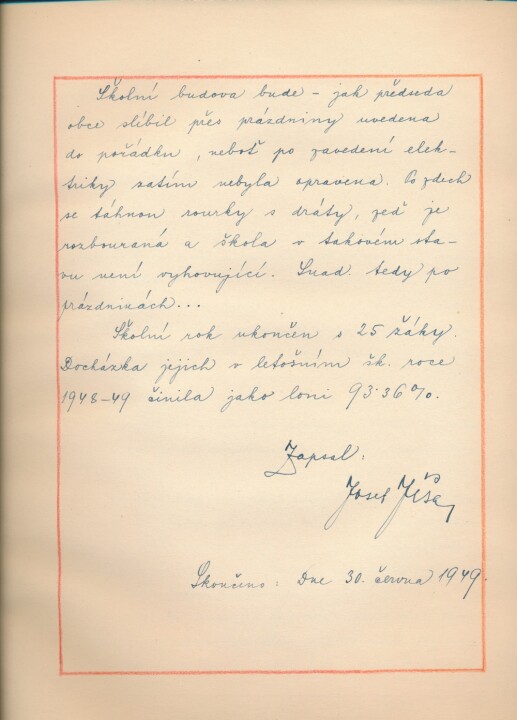 Školní budova bude - jak předseda
obce slíbil přes prázdniny uvedena
do pořádku, neboť po zavedení elek-
triky zatím nebyla opravena. Po zdech
se táhnou rourky s dráty, zeď je
rozbouraná a škola v takovém sta-
vu není vyhovující. Snad tedy po
prázdninách...
Školní rok ukončen s 25 žáky.
Docházka jejich v letošním šk. roce
1948-49 činila jako loni 93·36%.
Zapsal:
Josef
Skončeno: Dne 30. června 1949.